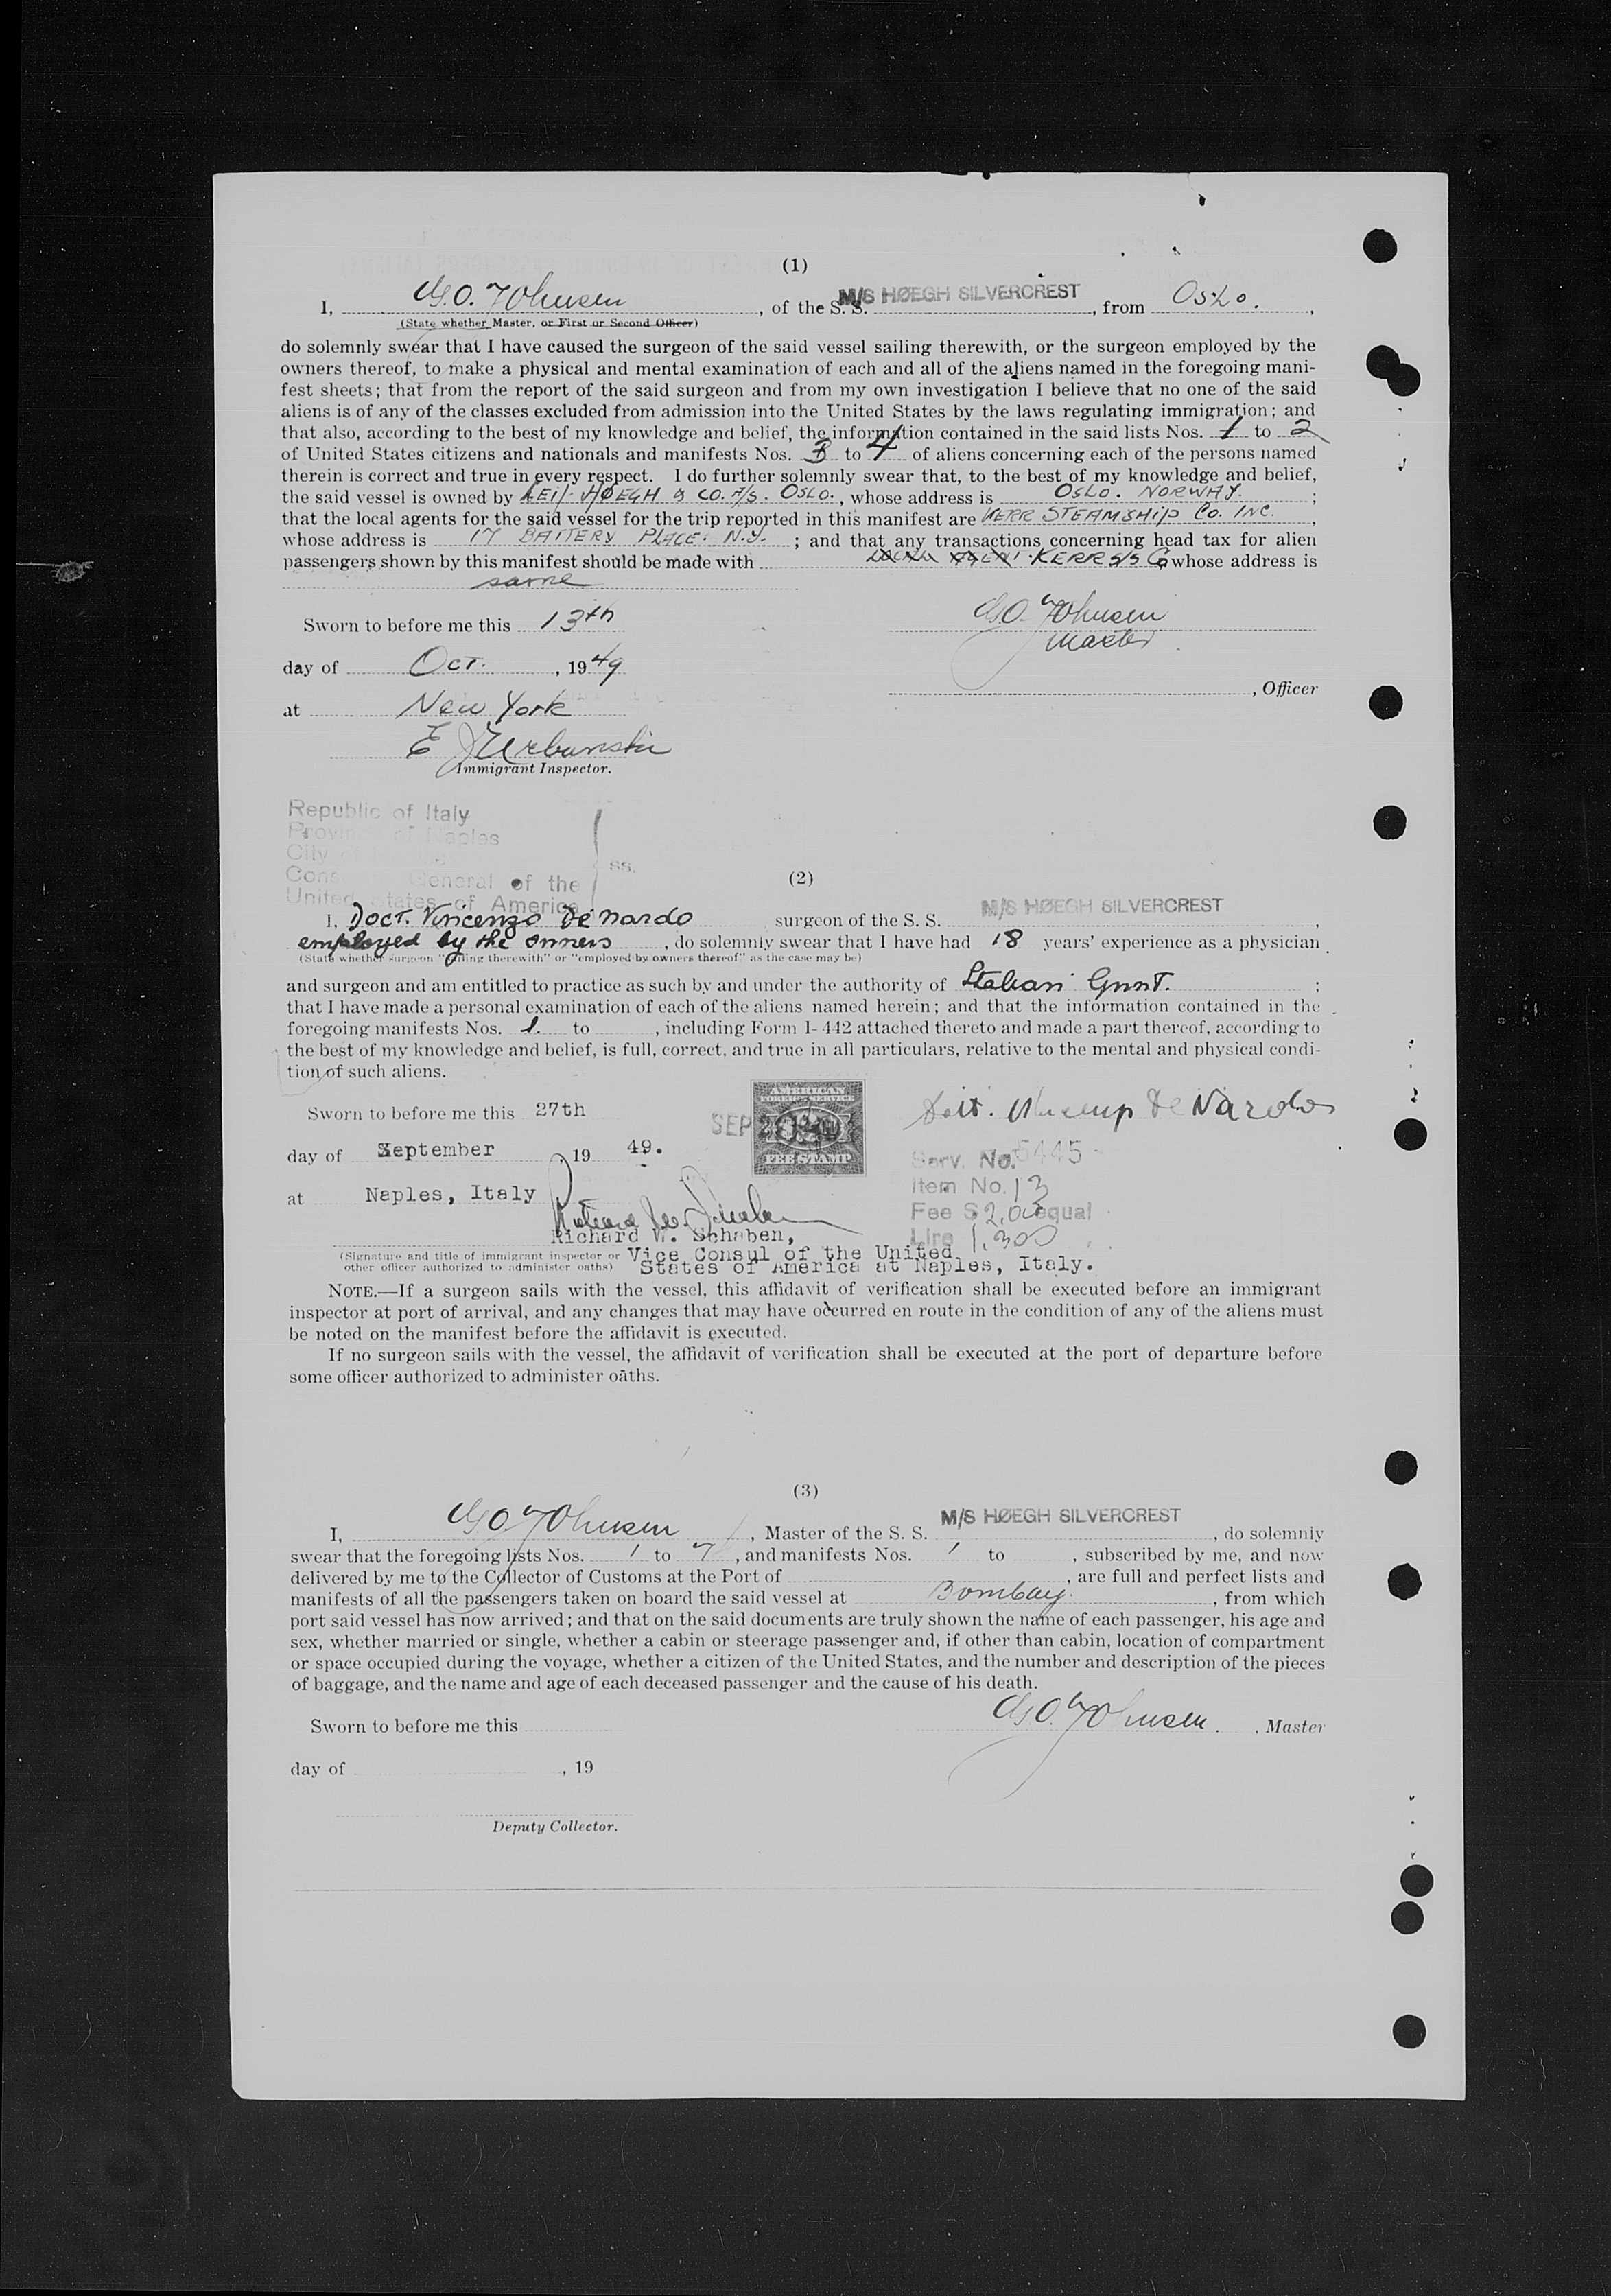 (1)
I, G.O. Johnsen, of the S. S. M/S HØEGH SILVERCREST, from OSLO.,
(State whether Master, or First or Second Officer)
do solemnly swear that I have caused the surgeon of the said vessel sailing therewith, or the surgeon employed by the
owners thereof, to make a physical and mental examination of each and all of the aliens named in the foregoing mani-
fest sheets; that from the report of the said surgeon and from my own investigation I believe that no one of the said
aliens is of any of the classes excluded from admission into the United States by the laws regulating immigration; and
that also, according to the best of my knowledge and belief, the information contained in the said lists Nos. 1 to 2
of United States citizens and nationals and manifests Nos. 3 to 4 of aliens concerning each of the persons named
therein is correct and true in every respect. I do further solemnly swear that, to the best of my knowledge and belief,
the said vessel is owned by LEIF HØEGH & CO. A/S. OSLO., whose address is OSLO. NORWAY.;
that the local agents for the said vessel for the trip reported in this manifest are KERR STEAMSHIP CO. INC.,
whose address is 17 BATTERY PLACE. N.Y.; and that any transactions concerning head tax for alien
passengers shown by this manifest should be made with KERR S/S Co whose address is
same
Sworn to before me this 13th
G.O. Johnsen
Master
day of Oct., 1949
, Officer
at New York
E J Urbanski
Immigrant Inspector.
Republic of Italy
Province of Naples
City of
General of the
United States of America
ss.
(2)
I, Doct. Vincenzo De Nardo surgeon of the S. S. M/S HØEGH SILVERCREST,
employed by the owners, do solemnly swear that I have had 18 years' experience as a physician
(State whether surgeon "sailing therewith" or "employed by owners thereof" as the case may be)
and surgeon and am entitled to practice as such by and under the authority of Italian Gvnt.;
that I have made a personal examination of each of the aliens named herein; and that the information contained in the
foregoing manifests Nos. 1. to , including Form I-442 attached thereto and made a part thereof, according to
the best of my knowledge and belief, is full, correct, and true in all particulars, relative to the mental and physical condi-
tion of such aliens.
Sworn to before me this 27th
AMERICAN
FOREIGN SERVICE
FEE STAMP
SEP
De Nardo
day of September 19 49.
Serv. No. 5445
at Naples, Italy
Item No. 13
Fee $ 2,00 equal
Lire 1,300
Richard W. Schaben,
(Signature and title of immigrant inspector or
other officer authorized to administer oaths)
Vice Consul of the United
States of America at Naples, Italy.
NOTE.—If a surgeon sails with the vessel, this affidavit of verification shall be executed before an immigrant
inspector at port of arrival, and any changes that may have occurred en route in the condition of any of the aliens must
be noted on the manifest before the affidavit is executed.
If no surgeon sails with the vessel, the affidavit of verification shall be executed at the port of departure before
some officer authorized to administer oaths.
(3)
I, G.O. Johnsen, Master of the S. S. M/S HØEGH SILVERCREST, do solemnly
swear that the foregoing lists Nos. 1 to 7, and manifests Nos. 1 to , subscribed by me, and now
delivered by me to the Collector of Customs at the Port of , are full and perfect lists and
manifests of all the passengers taken on board the said vessel at Bombay, from which
port said vessel has now arrived; and that on the said documents are truly shown the name of each passenger, his age and
sex, whether married or single, whether a cabin or steerage passenger and, if other than cabin, location of compartment
or space occupied during the voyage, whether a citizen of the United States, and the number and description of the pieces
of baggage, and the name and age of each deceased passenger and the cause of his death.
Sworn to before me this
G.O. Johnsen., Master
day of , 19
Deputy Collector.